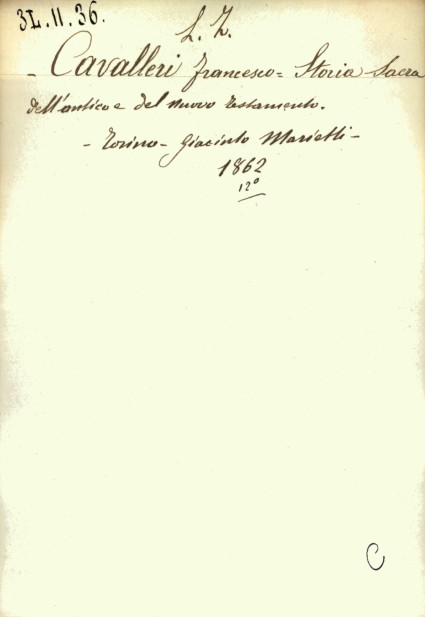 3L.11.36.
L. Z.
- Cavalleri Francesco = Storia Sacra
dell'antico e del nuovo testamento.
- Torino - Giacinto Marietti -
1862
12º
C